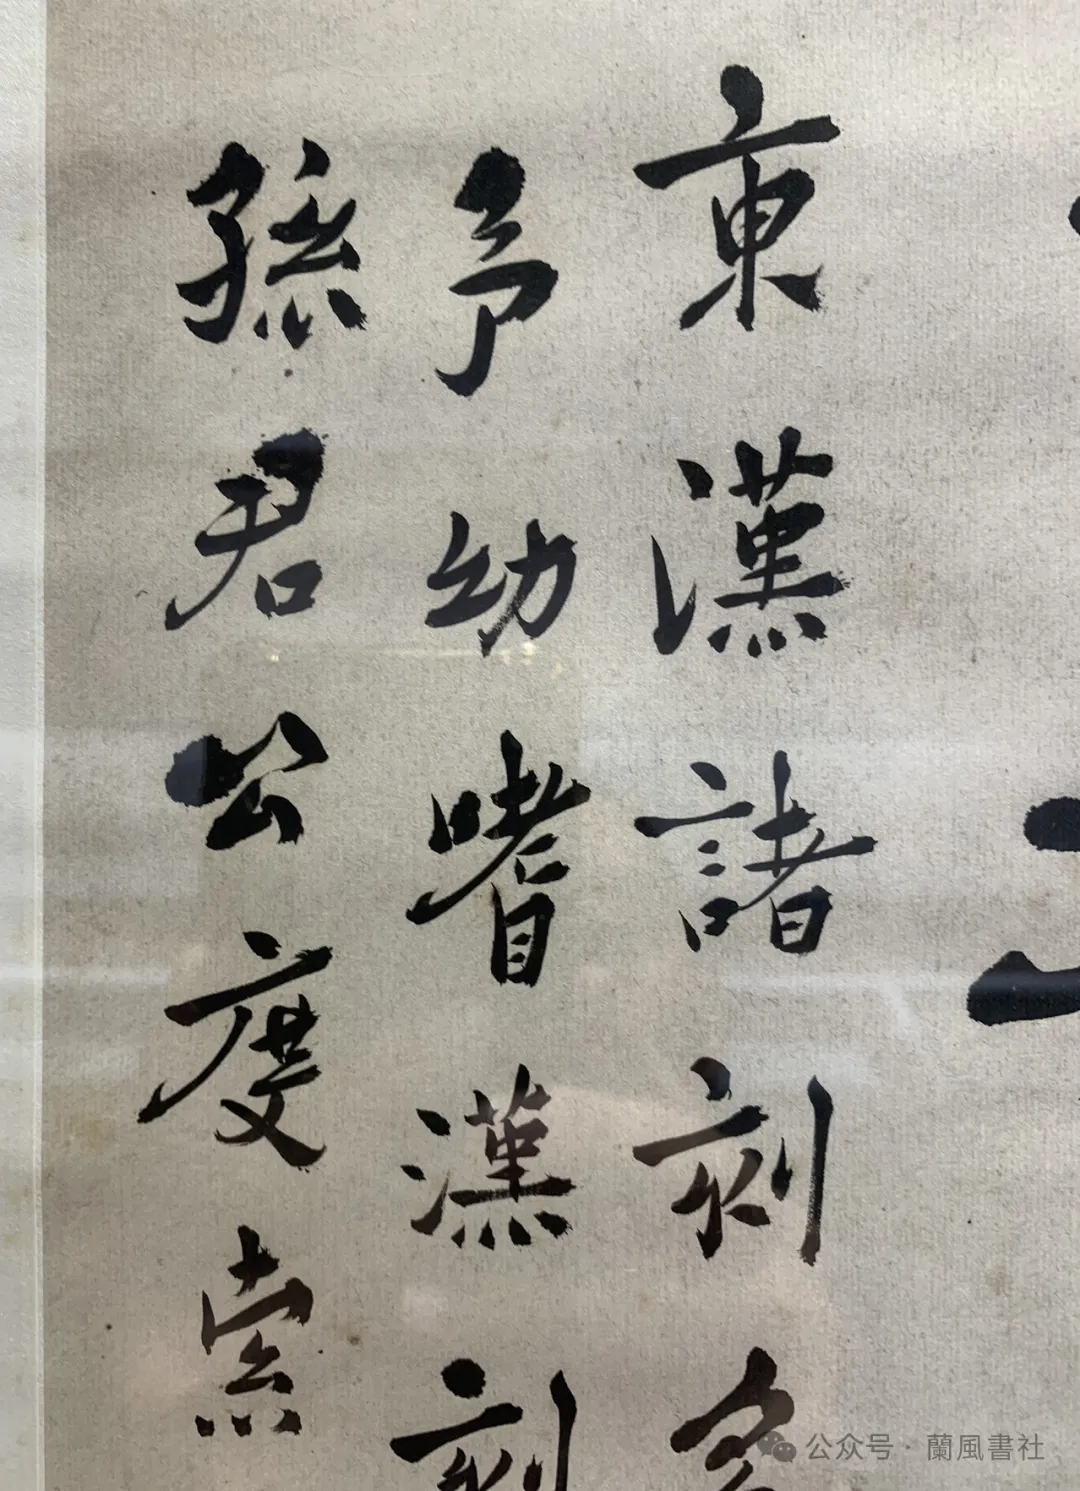 東漢諸刻
予幼嗜漢刻
孫君公度索
公众号·蘭風書社